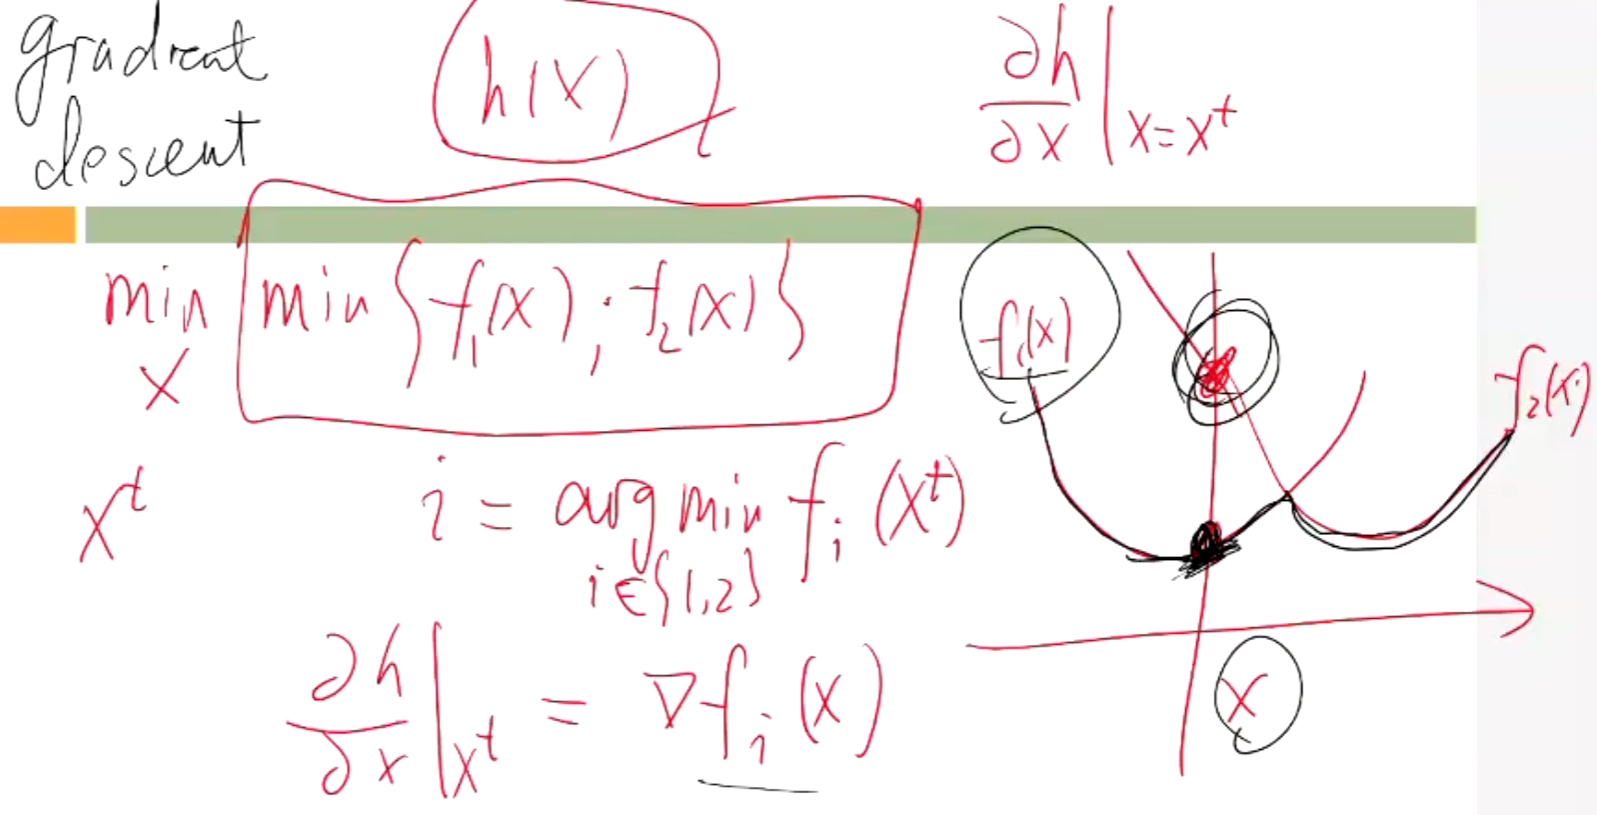 gradient
descent
h(x)
∂h/∂x |x=x^t
min x min { f₁(x) ; f₂(x) }
f₁(x)
f₂(x)
x^t
i = arg min i∈{1,2} fᵢ(x^t)
∂h/∂x |x^t = ∇fᵢ(x)
x